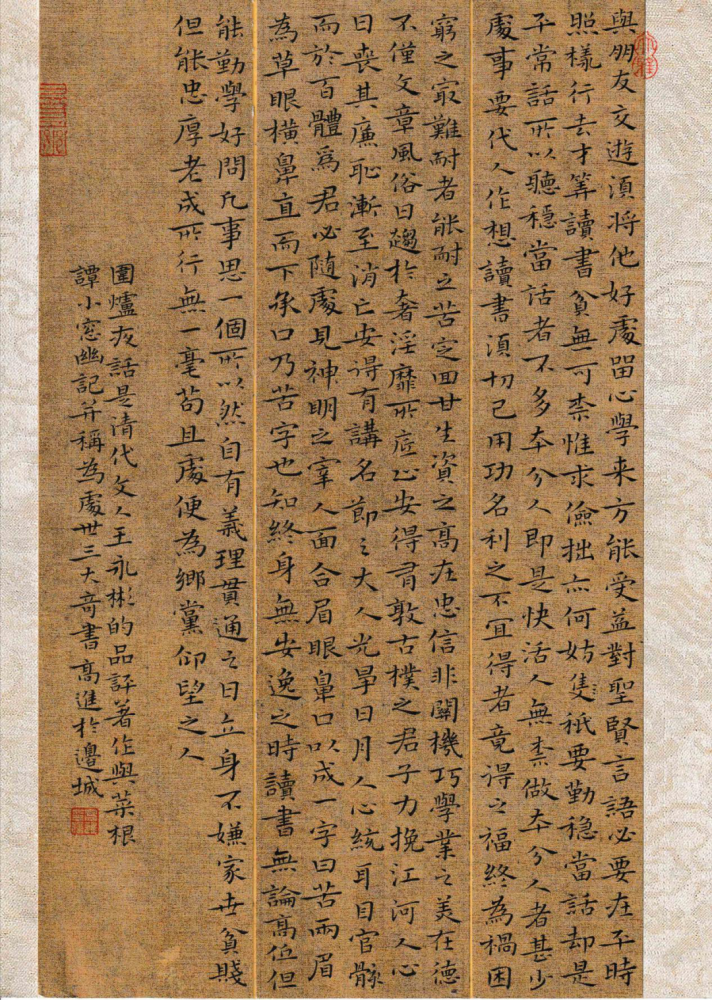 與朋友交遊須將他好處畱心學来方能受益對聖賢言語必要在平時
照樣行去才筭讀書貧無可柰惟求儉拙亦何妨隻祇要勤穩當話却是
平常話所以聽穩當話者不多本分人即是快活人無柰做本分人者甚少
處事要代人作想讀書須切己用功名利之不宜得者竟得之福終為禍困
窮之最難耐者能耐之苦定回甘生資之高在忠信非關機巧學業之美在德
不僅文章風俗日趨於奢淫靡所底止安得有敦古樸之君子力挽江河人心
日喪其廉恥漸至消亡安得有講名節之大人光爭日月人心統耳目官骸
而於百體爲君必隨處見神明之宰人面合眉眼鼻口以成一字曰苦兩眉
為草眼橫鼻直而下承口乃苦字也知終身無安逸之時讀書無論高低但
能勤學好問凡事思一個所以然自有義理貫通之日立身不嫌家世貧賤
但能忠厚老成所行無一毫苟且處便為鄉黨仰望之人
圍爐夜話是清代文人王永彬的品評著作與菜根
譚小窓幽記并稱為處世三大奇書高進於邊城